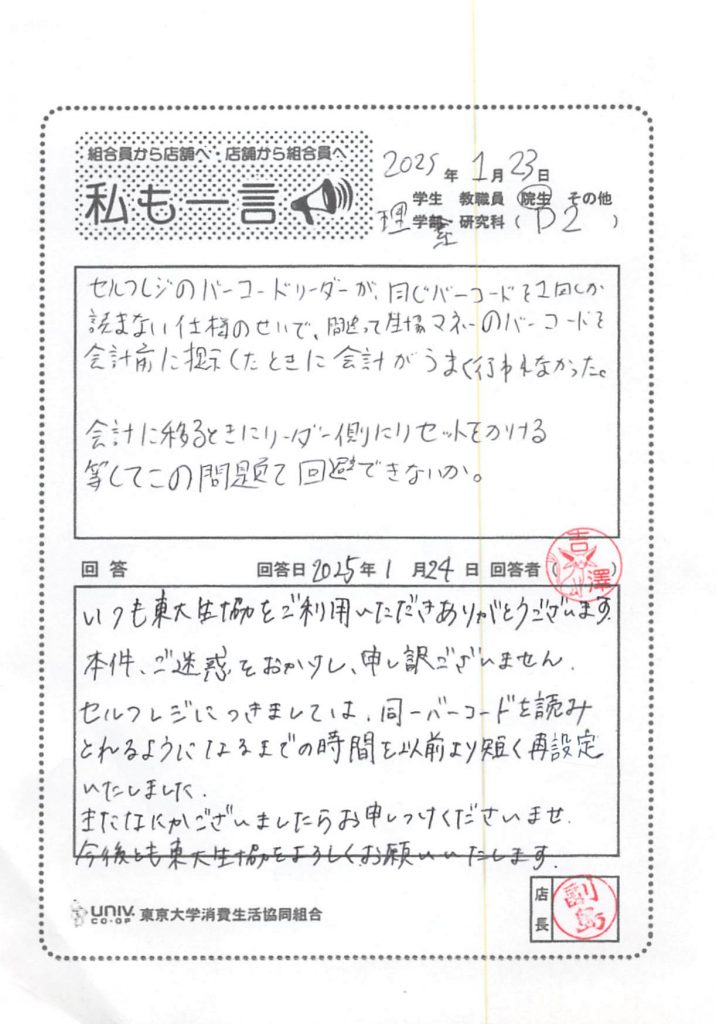 組合員から店舗へ・店舗から組合員へ
私も一言
2025年1月23日
学生 教職員 院生 その他
理学系 研究科(D2)
セルフレジのバーコードリーダーが、同じバーコードを1回しか
読まない仕様のせいで、間違って生協マネーのバーコードを
会計前に提示したときに会計がうまく行われなかった。
会計に移るときにリーダー側にリセットをかける
等してこの問題て回避できないか。
回答 回答日2025年1月24日 回答者(吉澤)
いつも東大生協をご利用いただきありがとうございます。
本件、ご迷惑をおかけし、申し訳ございません.
セルフレジにつきましては、同一バーコードを読み
とれるようになるまでの時間を以前より短く再設定
いたしました.
またなにかございましたらお申しつけくださいませ.
今後とも東大生協をよろしくお願いいたします.
UNIV. CO-OP 東京大学消費生活協同組合
店長 副島